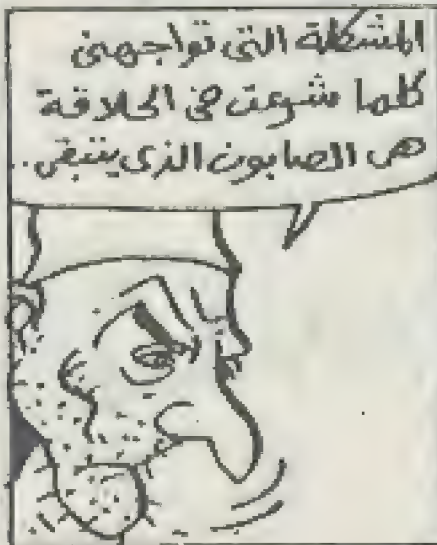 المشكلة التى تواجهنى
كلما شرعت فى الحلاقة
هى الصابون الذى يتبقى..